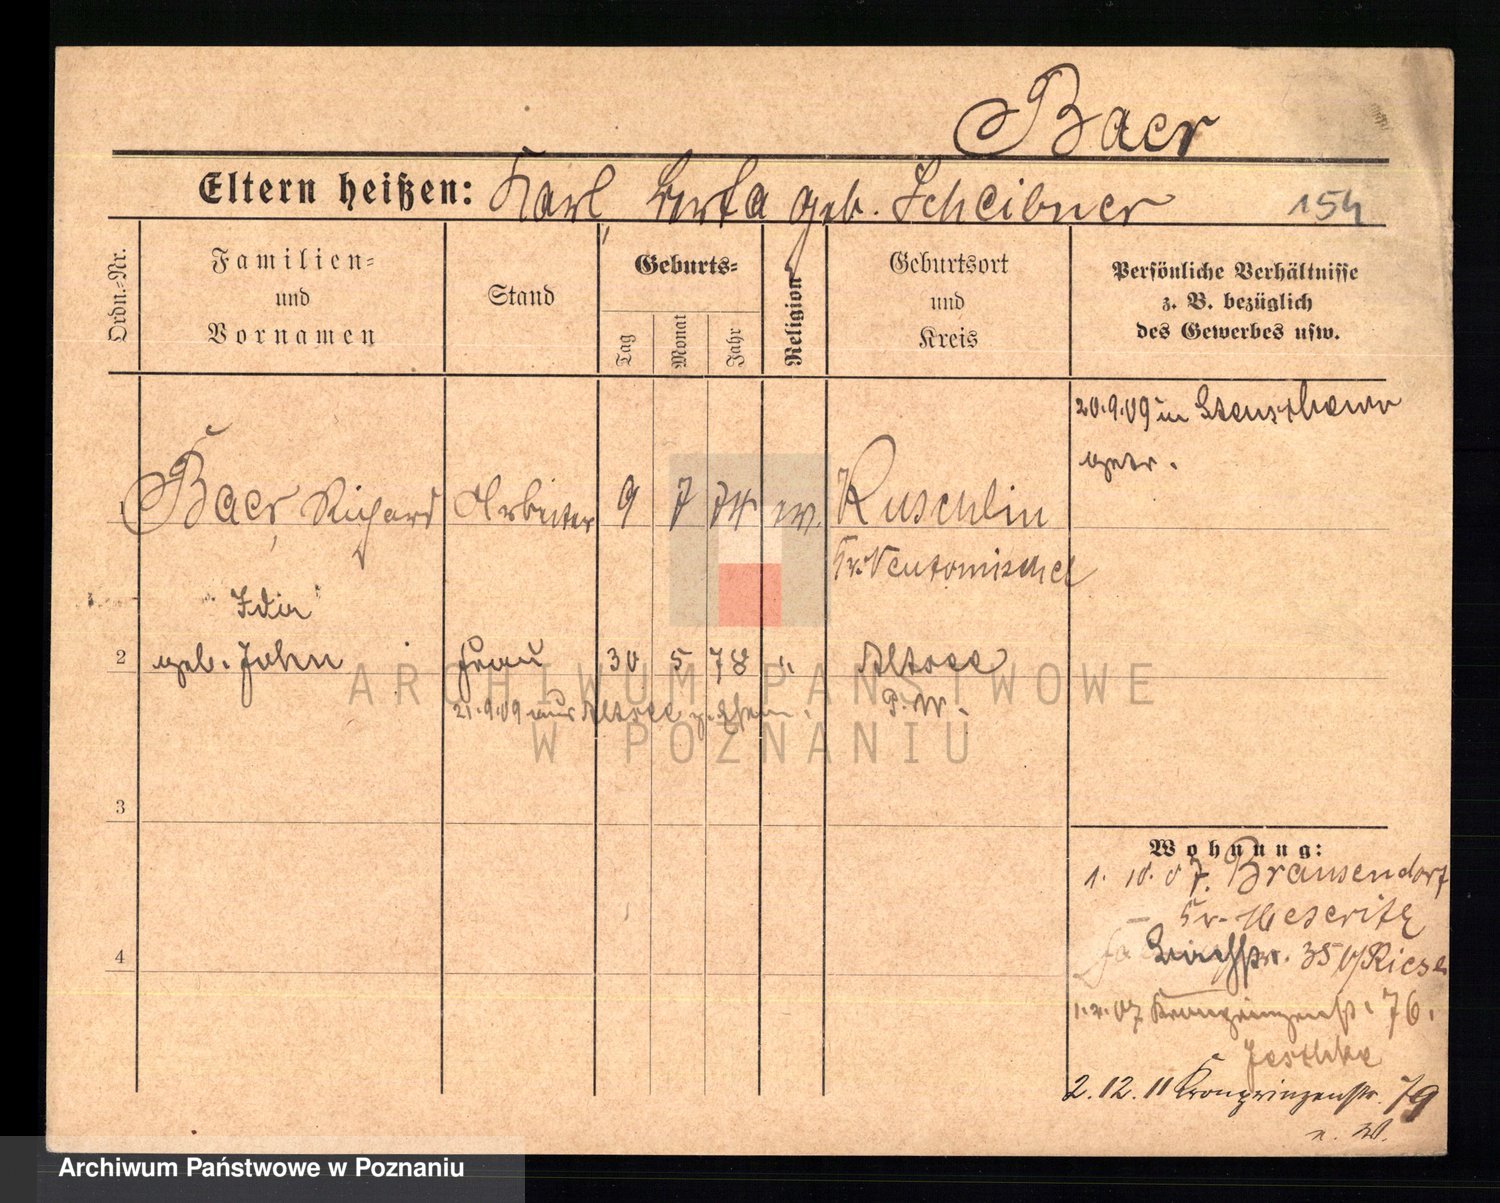 Baer
Eltern heißen: Karl, Berta geb. Scheibner 154
Ordn.-Nr.
Familien-
und
Vornamen
Stand
Geburts-
Tag
Monat
Jahr
Religion
Geburtsort
und
Kreis
Persönliche Verhältnisse
z. B. bezüglich
des Gewerbes usw.
20.9.09 in
getr.
1 Baer, Richard Arbeiter 9 7 74 ev. Kuschlin
Kr. Neutomischel
Ida
2 geb. Jahn Frau 30 5 78 " Altsee
21.9.09 aus Altsee z. Ehem.
P. W.
3
4
Wohnung:
1. 10. 07. Brausendorf
Kr. Meseritz
35 b/ Riese
Kronprinzenstr. 76.
Jeschke
2. 12. 11 Kronprinzenstr. 79
n. W.
ARCHIWUM PAŃSTWOWE
W POZNANIU
Archiwum Państwowe w Poznaniu